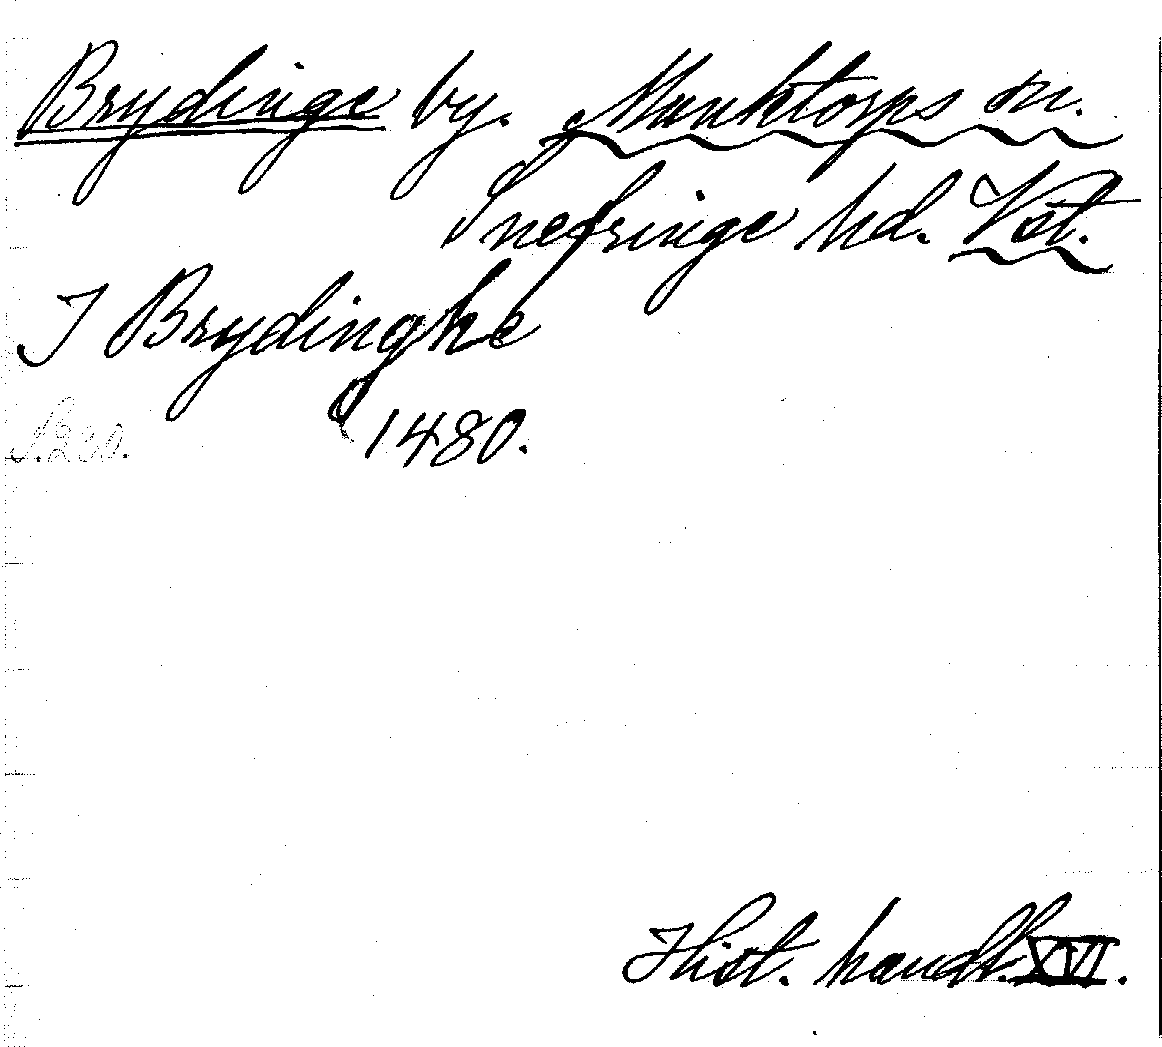 Brydinge by. Munktorps sn.
Snefringe hd. Vst.
J Brydinghe
S. 230. 1480.
Hist. handl. XVI.